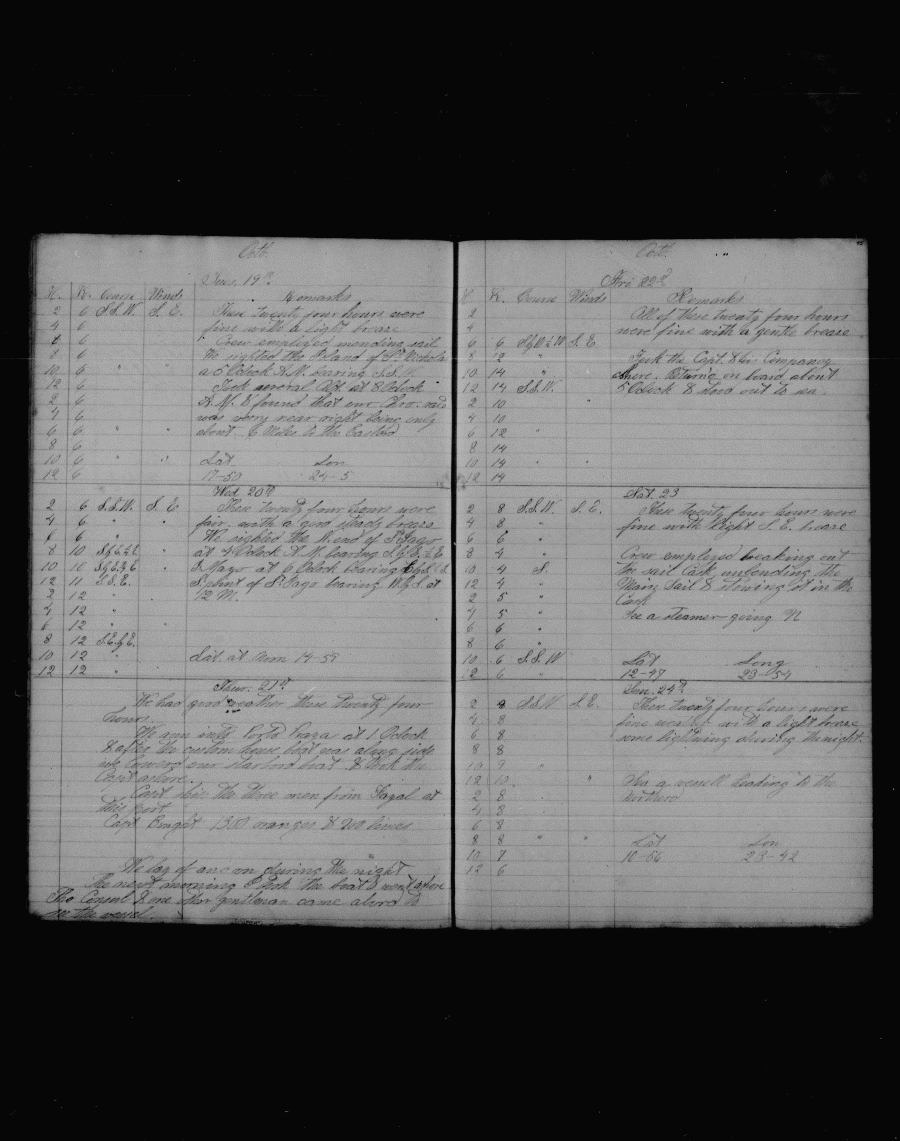 Octb.
Tues. 19th
H. K. Course Winds Remarks
2 6 S.S.W. S.E. These twenty four hours were
4 6 fine with a light brease
6 6 Crew employed mending sail
8 6 We sighted the Island of St Nichola
10 6 " " a 5 Oclock A.M. bearing S.S.W.
12 6 Took several Alt at 8 Oclock
2 6 A.M. & found that our Chro. was
4 6 was very near right being only
6 6 " " about 6 Miles to the Eastard
8 6
10 6 " " Lat Lon
12 6 17-50 24-5
Wed. 20th
2 6 S.S.W. S.E. These twenty four hours were
4 6 " " fair with a good steady brease
6 6 " " We sighted the N. end of St Jago
8 10 " at 4 Oclock A.M. bearing
10 10 " Mayo at 6 Oclock bearing
12 11 S.S.E. S. point of St Jago bearing W.by S. at
2 12 " 12 M.
4 12 "
6 12 " "
8 12 S.E.by E.
10 12 " Lat. at noon 14-59
12 12 "
Thur. 21st
We had good weather these twenty four
hours.
We ran into Porto Praza at 1 Oclock
& after the custom house boat was along side
we lowered our starbord boat & took the
Capt ashore.
the three men from Fayal at
this port
Capt Bought 1300 oranges & 200 limes
We lay of an on during the night
the next morning I took the boat & went ashore
The Consul & one other gentleman came abord to
see the vessel
Octb.
Fri 22d
H. K. Course Winds Remarks
2 All of these twenty four hours
4 were fine with a gentle brease
6 6 S.E.
8 12 " Took the Capt. & Company
10 14 " ashore. Returning on board about
12 14 S.S.W. 5 Oclock & stood out to sea.
2 10 "
4 10
6 12 "
8 14
10 14 " "
12 14
Sat. 23
2 8 S.S.W. S.E. These twenty four hours were
4 8 " fine with light S.E. brease
6 6 "
8 4 " Crew employed breaking out
10 4 S. the sail Cask unbending the
12 4 " Main Sail & stowing it in the
2 5 " Cask
4 5 " See a steamer going N
6 6 "
8 6 "
10 6 S.S.W Lat Long
12 6 " 12-47 23-54
Sun. 24th
2 9 S.S.W S.E. These twenty four hours were
4 8 fine weather with a light brease
6 8 some lightning during the night.
8 8
10 9 "
12 10 " See a vessell heading to the
2 8 northerd
4 8
6 8
8 8 " " Lat Lon
10 7 10-56 23-42
12 6